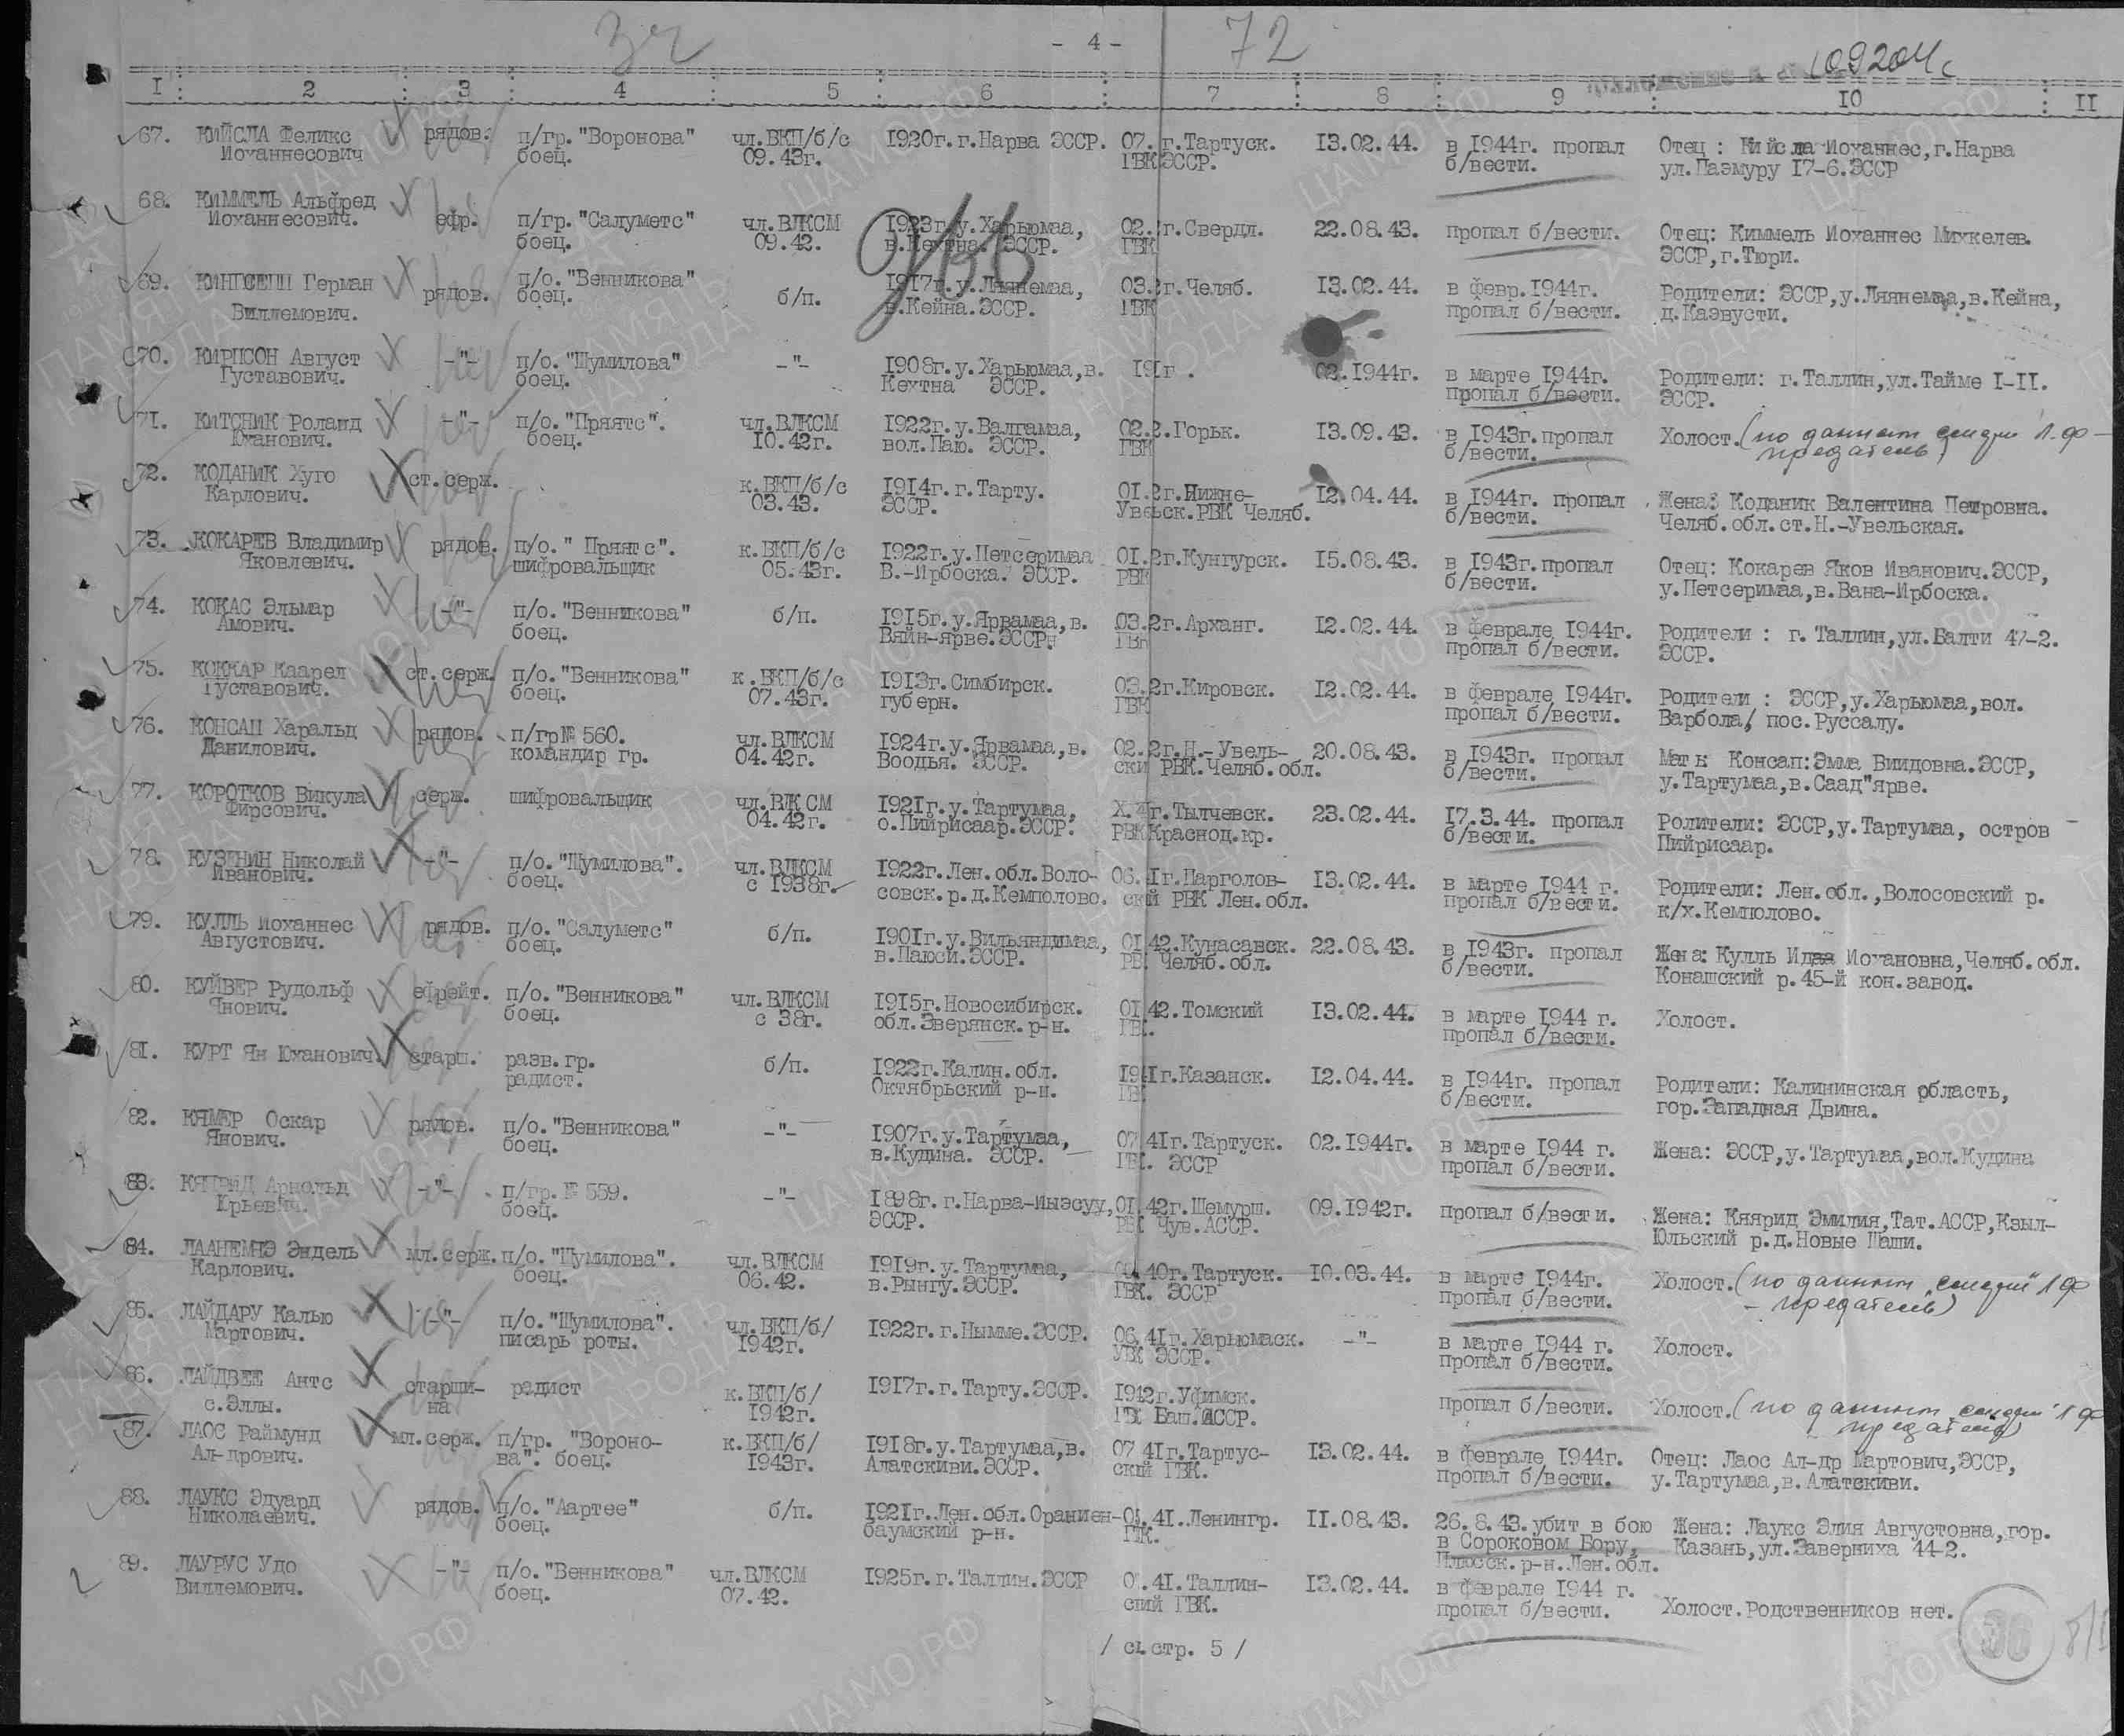 - 4 -
72
109204с
I 2 3 4 5 6 7 8 9 10 II
67. КИЙСЛА Феликс рядов. п/гр. "Воронова" чл.ВКП/б/с 1920г.г.Нарва ЭССР. 07. г.Тартуск. 13.02.44. в 1944г. пропал Отец : Кийсла Иоханнес,г.Нарва
Иоханнесович боец. 09.43г. ГВК ЭССР. б/вести. ул.Паэмуру 17-6.ЭССР
68. КИММЕЛЬ Альфред ефр. п/гр."Салуметс" чл.ВЛКСМ 1923г.у.Харьюмаа, 02. г.Свердл. 22.08.43. пропал б/вести. Отец: Киммель Иоханнес Михкелев.
Иоханнесович. боец. 09.42. в.Кехтна. ЭССР. ГВК ЭССР,г.Тюри.
69. КИНГСЕПП Герман рядов. п/о."Венникова" б/п. 1917г.у.Ляянемаа, 03. г.Челяб. 13.02.44. в февр.1944г. Родители: ЭССР,у.Ляянемаа,в.Кейна,
Виллемович. боец. в.Кейна.ЭССР. ГВК пропал б/вести. д.Каэвусти.
70. КИРПСОН Август -"- п/о."Шумилова" -"- 1908г.у.Харьюмаа,в. 191г . 02.1944г. в марте 1944г. Родители: г.Таллин,ул.Тайме I-II.
Густавович. боец. Кехтна ЭССР. пропал б/вести. ЭССР.
71. КИТСНИК Роланд -"- п/о."Пряятс". чл.ВЛКСМ 1922г.у.Валгамаа, 02. .Горьк. 13.09.43. в 1943г.пропал Холост. (по данным 1 ф -
Юханович. боец. 10.42г. вол.Паю. ЭССР. ГВК б/вести. предатель)
72. КОДАНИК Хуго ст.серж. к.ВКП/б/с 1914г.г.Тарту. 01. г.Нижне- 12.04.44. в 1944г. пропал Жена: Коданик Валентина Петровна.
Карлович. 03.43. ЭССР. Увельск.РВК Челяб. б/вести. Челяб.обл.ст.Н.-Увельская.
73. КОКАРЕВ Владимир рядов. п/о." Пряятс". к.ВКП/б/с 1922г.у.Петсеримаа 01. 2г.Кунгурск. 15.08.43. в 1943г.пропал Отец: Кокарев Яков Иванович.ЭССР,
Яковлевич. шифровальщик 05.43г. В.-Ирбоска. ЭССР. РВК б/вести. у.Петсеримаа,в.Вана-Ирбоска.
74. КОКАС Эльмар -"- п/о."Венникова" б/п. 1915г.у.Ярвамаа,в. 03. 2г.Арханг. 12.02.44. в феврале 1944г. Родители : г.Таллин,ул.Валти 47-2.
Амович. боец. Вяйн-ярве.ЭССР. ГВК пропал б/вести. ЭССР.
75. КОККАР Каарел ст.серж. п/о."Венникова" к.ВКП/б/с 1913г.Симбирск. 03. 2г.Кировск. 12.02.44. в феврале 1944г. Родители : ЭССР,у.Харьюмаа,вол.
Густавович. боец. 07.43г. губерн. ГВК пропал б/вести. Варбола, пос.Руссалу.
76. КОНСАП Харальд рядов. п/гр№ 560. чл.ВЛКСМ 1924г.у.Ярвамаа,в. 02. 2г.Н.-Увель- 20.08.43. в 1943г. пропал Мать Консап:Эмма Виидовна.ЭССР,
Данилович. командир гр. 04.42г. Воодья. ЭССР. ски РВК.Челяб.обл. б/вести. у.Тартумаа,в.Саад"ярве.
77. КОРОТКОВ Викула серж. шифровальщик чл.ВЛКСМ 1921г.у.Тартумаа, X.4 г.Тылчевск. 23.02.44. 17.3.44. пропал Родители: ЭССР,у.Тартумаа, остров
Фирсович. 04.42г. о.Пийрисаар.ЭССР. РВК Краснод.кр. б/вести. Пийрисаар.
78. КУЗЕНИН Николай -"- п/о."Шумилова". чл.ВЛКСМ 1922г.Лен.обл.Воло- 06. 1г.Парголов- 13.02.44. в марте 1944 г. Родители: Лен.обл.,Волосовский р.
Иванович. боец. с 1938г. совск.р.д.Кемполово. ский РВК Лен.обл. пропал б/вести. к/х.Кемполово.
79. КУЛЛЬ Иоханнес рядов. п/о."Салуметс" б/п. 1901г.у.Вильяндимаа, 01 42.Кунасавск. 22.08.43. в 1943г. пропал Жена: Кулль Идаа Иохановна,Челяб.обл.
Августович. боец. в.Паюси.ЭССР. РВ Челяб.обл. б/вести. Конашский р.45-й кон.завод.
80. КУЙВЕР Рудольф ефрейт. п/о."Венникова" чл.ВЛКСМ 1915г.Новосибирск. 01 42.Томский 13.02.44. в марте 1944 г. Холост.
Янович. боец. с 38г. обл.Зверянск.р-н. ГВК. пропал б/вести.
81. КУРТ Ян Юханович старш. разв.гр. б/п. 1922г.Калин.обл. 1941г.Казанск. 12.04.44. в 1944г. пропал Родители: Калининская область,
радист. Октябрьский р-н. ГВК б/вести. гор.Западная Двина.
82. КЯМЕР Оскар рядов. п/о."Венникова" -"- 1907г.у.Тартумаа, 07 41г.Тартуск. 02.1944г. в марте 1944 г. Жена: ЭССР,у.Тартумаа,вол.Кудина
Янович. боец. в.Кудина. ЭССР. ГВК. ЭССР пропал б/вести.
83. КЯЯРИД Арнольд -"- п/гр.№ 559. -"- 1898г.г.Нарва-Иыэсуу, 01.42г.Шемурш. 09.1942г. пропал б/вести. Жена: Кяярид Эмилия,Тат.АССР,Кзыл-
Юрьевич. боец. ЭССР. РВК Чув.АССР. Юльский р.д.Новые Паши.
84. ЛААНЕМТЭ Эндель мл.серж. п/о."Шумилова". чл.ВЛКСМ 1919г.у.Тартумаа, 40г.Тартуск. 10.03.44. в марте 1944г. Холост. (по данным 1 ф
Карлович. боец. 06.42. в.Рынгу.ЭССР. ГВК. ЭССР пропал б/вести. - предатель)
85. ЛАЙДАРУ Калью -"- п/о."Шумилова". чл.ВКП/б/ 1922г.г.Нымме.ЭССР. 06.41г.Харьюмаск. -"- в марте 1944 г. Холост.
Мартович. писарь роты. 1942г. УВК ЭССР. пропал б/вести.
86. ЛАЙДВЕЕ Антс старши- радист к.ВКП/б/ 1917г.г.Тарту.ЭССР. 1942г.Уфимск. пропал б/вести. Холост. (по данным 1 ф
с.Эллы. на 1942г. ГВК Баш.АССР. предатель)
87. ЛАОС Раймунд мл.серж. п/гр. "Вороно- к.ВКП/б/ 1918г.у.Тартумаа,в. 07 41г.Тартус- 13.02.44. в феврале 1944г. Отец: Лаос Ал-др Мартович,ЭССР,
Ал-дрович. ва". боец. 1943г. Алатскиви.ЭССР. ский ГВК. пропал б/вести. у.Тартумаа,в.Алатскиви.
88. ЛАУКС Эдуард рядов. п/о."Аартее" б/п. 1921г.Лен.обл.Ораниен- 41.Ленингр. 11.08.43. 26.8.43.убит в бою Жена: Лаукс Элия Августовна,гор.
Николаевич. боец. баумский р-н. ГВК. в Сороковом Бору, Казань,ул.Заверниха 44-2.
Плюсск.р-н.Лен.обл.
89. ЛАУРУС Удо -"- п/о."Венникова" чл.ВЛКСМ 1925г.г.Таллин.ЭССР 0 .41.Таллин- 13.02.44. в феврале 1944 г. Холост.Родственников нет.
Виллемович. боец. 07.42. ский ГВК. пропал б/вести.
/ см.стр. 5 /
36